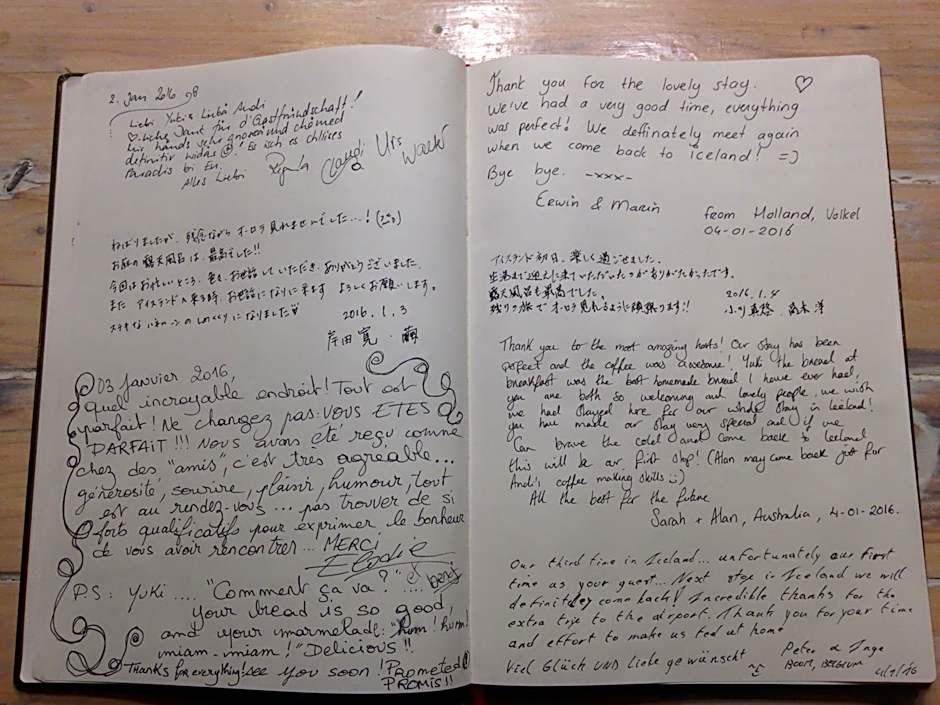 2. Jan 2016
Liebi Yuki & Liebä Andi
Paradis bi Eu.
Alles Liebi Claudi Urs
ねばりましたが、残念ながらオーロラ見れませんでした…!
お庭の露天風呂は、最高でした!!
今回はお忙しいところ、色々、お世話していただき、ありがとうございました。
また アイスランドへ来る時、お世話になりに来ます よろしくお願いします。
ステキなハネムーンのしめくくりになりました
2016.1.3
岸田 寛・
03 Janvier 2016,
quel incroyable endroit! Tout est
parfait! Ne changez pas: VOUS ETES
PARFAIT!!! Nous avons été reçu comme
chez des "amis", c'est très agréable...
générosité, sourire, plaisir, humour, tout
est au rendez-vous... pas trouver de si
forts qualificatifs pour exprimer le bonheur
de vous avoir rencontrer... MERCI
Elodie
PS: Yuki .... "Comment ça va?".... benj
your bread is so good,
and your marmelade: "hum! hum!
miam-miam!" Delicious!!
Thanks for everything! See you soon! Prometed
PROMIS!!
Thank you for the lovely stay. ♡
We've had a very good time, everything
was perfect! We deffinately meet again
when we come back to iceland! =)
Bye bye. -xxx-
Erwin & Marin
from Holland, Volkel
04-01-2016
アイスランド初日、楽しく過ごせました。
空港まで迎えに来ていただいたのがありがたかったです。
露天風呂も最高でした。
残りの旅でオーロラ見れるように頑張ります!!
2016.1.4
Thank you to the most amazing hosts! Our stay has been
perfect and the coffee was awesome! Yuki the bread at
breakfast was the best homemade bread I have ever had,
you are both so welcoming and lovely people, we wish
we had stayed here for our whole stay in Iceland!
You have made our stay very special and if we
can brave the cold and come back to Iceland
this will be our first stop! (Alan may come back just for
Andi's coffee making skills :))
All the best for the future
Sarah + Alan, Australia, 4-01-2016.
Our third time in Iceland... unfortunately our first
time as your guest... Next stop in Iceland we will
definitley come back! Incredible thanks for the
extra trip to the airport. Thank you for your time
and effort to make us feel at home
Viel Glück UND Liebe gewünscht
Peter & Inge
BOOM, BELGIUM
4/1/'16